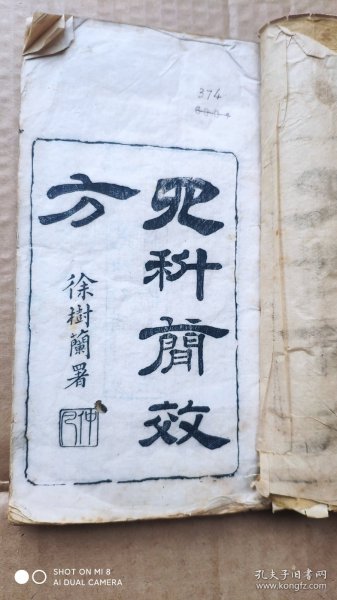 374
四科簡效
方
徐樹蘭署
仲凡
SHOT ON MI 8
AI DUAL CAMERA
孔夫子旧书网
www.kongfz.com